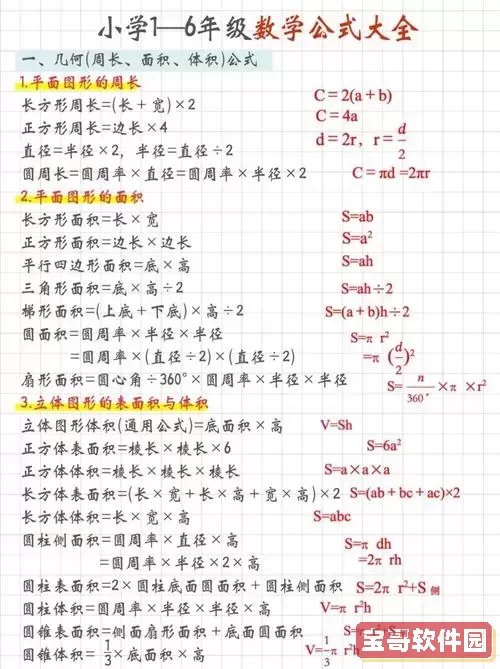 小学1—6年级数学公式大全
一、几何(周长、面积、体积)公式
1.平面图形的周长
长方形周长=(长+宽)×2 C=2(a+b)
正方形周长=边长×4 C=4a
直径=半径×2，半径=直径÷2 d=2r，r=d/2
圆周长=圆周率×直径=圆周率×半径×2 C=πd=2πr
2.平面图形的面积
长方形面积=长×宽 S=ab
正方形面积=边长×边长 S=a²
平行四边形面积=底×高 S=ah
三角形面积=底×高÷2 S=ah÷2
梯形面积=(上底+下底)×高÷2 S=(a+b)h÷2
圆面积=圆周率×半径×半径 S=π r²
=圆周率×(直径÷2)×(直径÷2) =π(d/2)²
扇形面积=圆心角÷360°×圆周率×半径×半径 S=n/360°×π×r²
3.立体图形的表面积与体积
立体图形体积(通用公式)=底面积×高 V=Sh
正方体表面积=棱长×棱长×6 S=6a²
正方体体积=棱长×棱长×棱长 S=a×a×a
长方体表面积=(长×宽+长×高+宽×高)×2 S=(ab+bc+ac)×2
长方体体积=长×宽×高 S=abc
圆柱侧面积=圆周率×直径×高 S=π dh
=圆周率×半径×2×高 =2π rh
圆柱表面积=2×圆柱底面圆面积+圆柱侧面积 S=2π r²+S侧
圆柱体积=圆周率×半径×半径×高 V=π r²h
圆锥表面积=侧面扇形面积+底面圆面积
圆锥体积=1/3×底面积×高 V=1/3π r²h
宝哥软件园